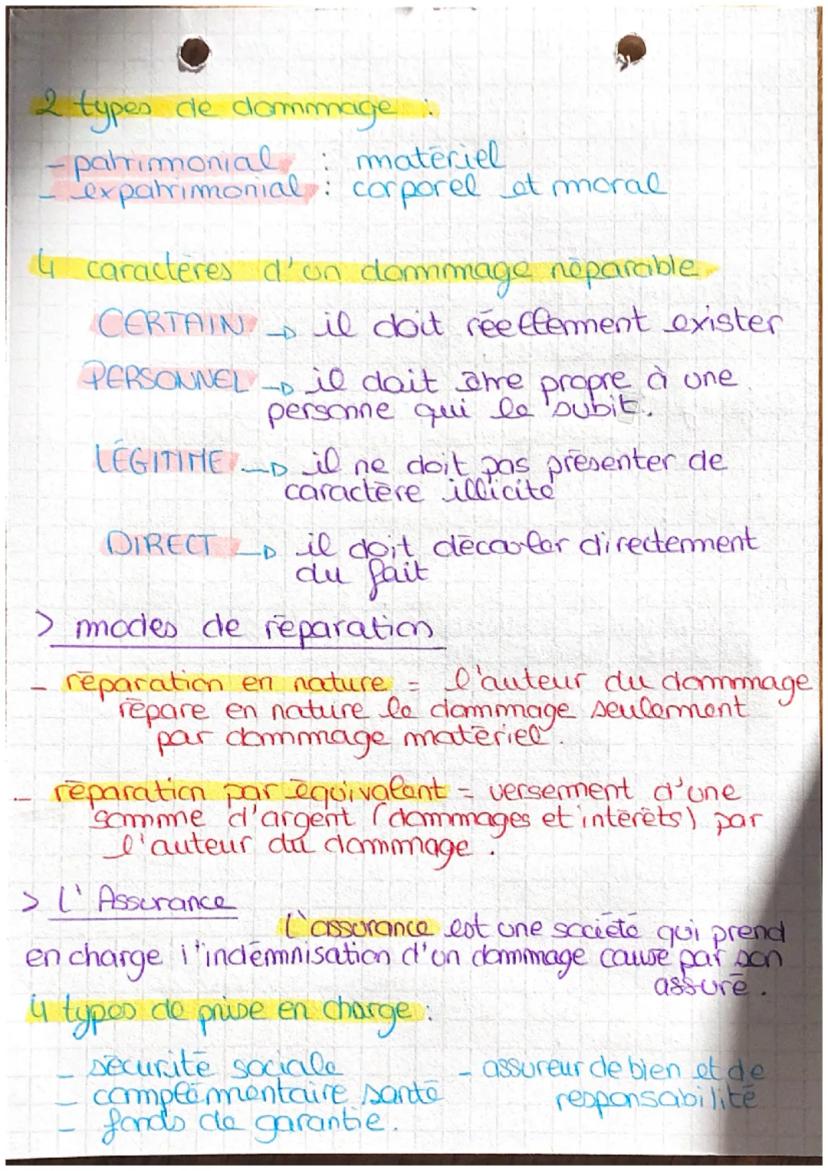 2 types de dommage :
- patrimonial : matériel
- expatrimonial : corporel et moral
4 caractères d'un dommage réparable
CERTAIN → il doit réellement exister
PERSONNEL → il doit être propre à une
personne qui le subit.
LÉGITIME → il ne doit pas présenter de
caractère illicite
DIRECT → il doit découler directement
du fait
> modes de réparation
- réparation en nature = l'auteur du dommage
répare en nature le dommage seulement
par dommage matériel.
- réparation par équivalent = versement d'une
somme d'argent (dommages et intérêts) par
l'auteur du dommage.
> L'Assurance
L'assurance est une société qui prend
en charge l'indémnisation d'un dommage causé par son
assuré.
4 types de prise en charge :
- sécurité sociale - assureur de bien et de
- complémentaire santé responsabilité
- fonds de garantie.